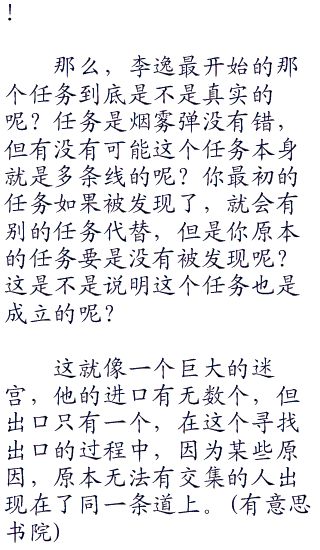 !
那么，李逸最开始的那
个任务到底是不是真实的
呢？任务是烟雾弹没有错，
但有没有可能这个任务本身
就是多条线的呢？你最初的
任务如果被发现了，就会有
别的任务代替，但是你原本
的任务要是没有被发现呢？
这是不是说明这个任务也是
成立的呢？
这就像一个巨大的迷
宫，他的进口有无数个，但
出口只有一个，在这个寻找
出口的过程中，因为某些原
因，原本无法有交集的人出
现在了同一条道上。(有意思
书院)